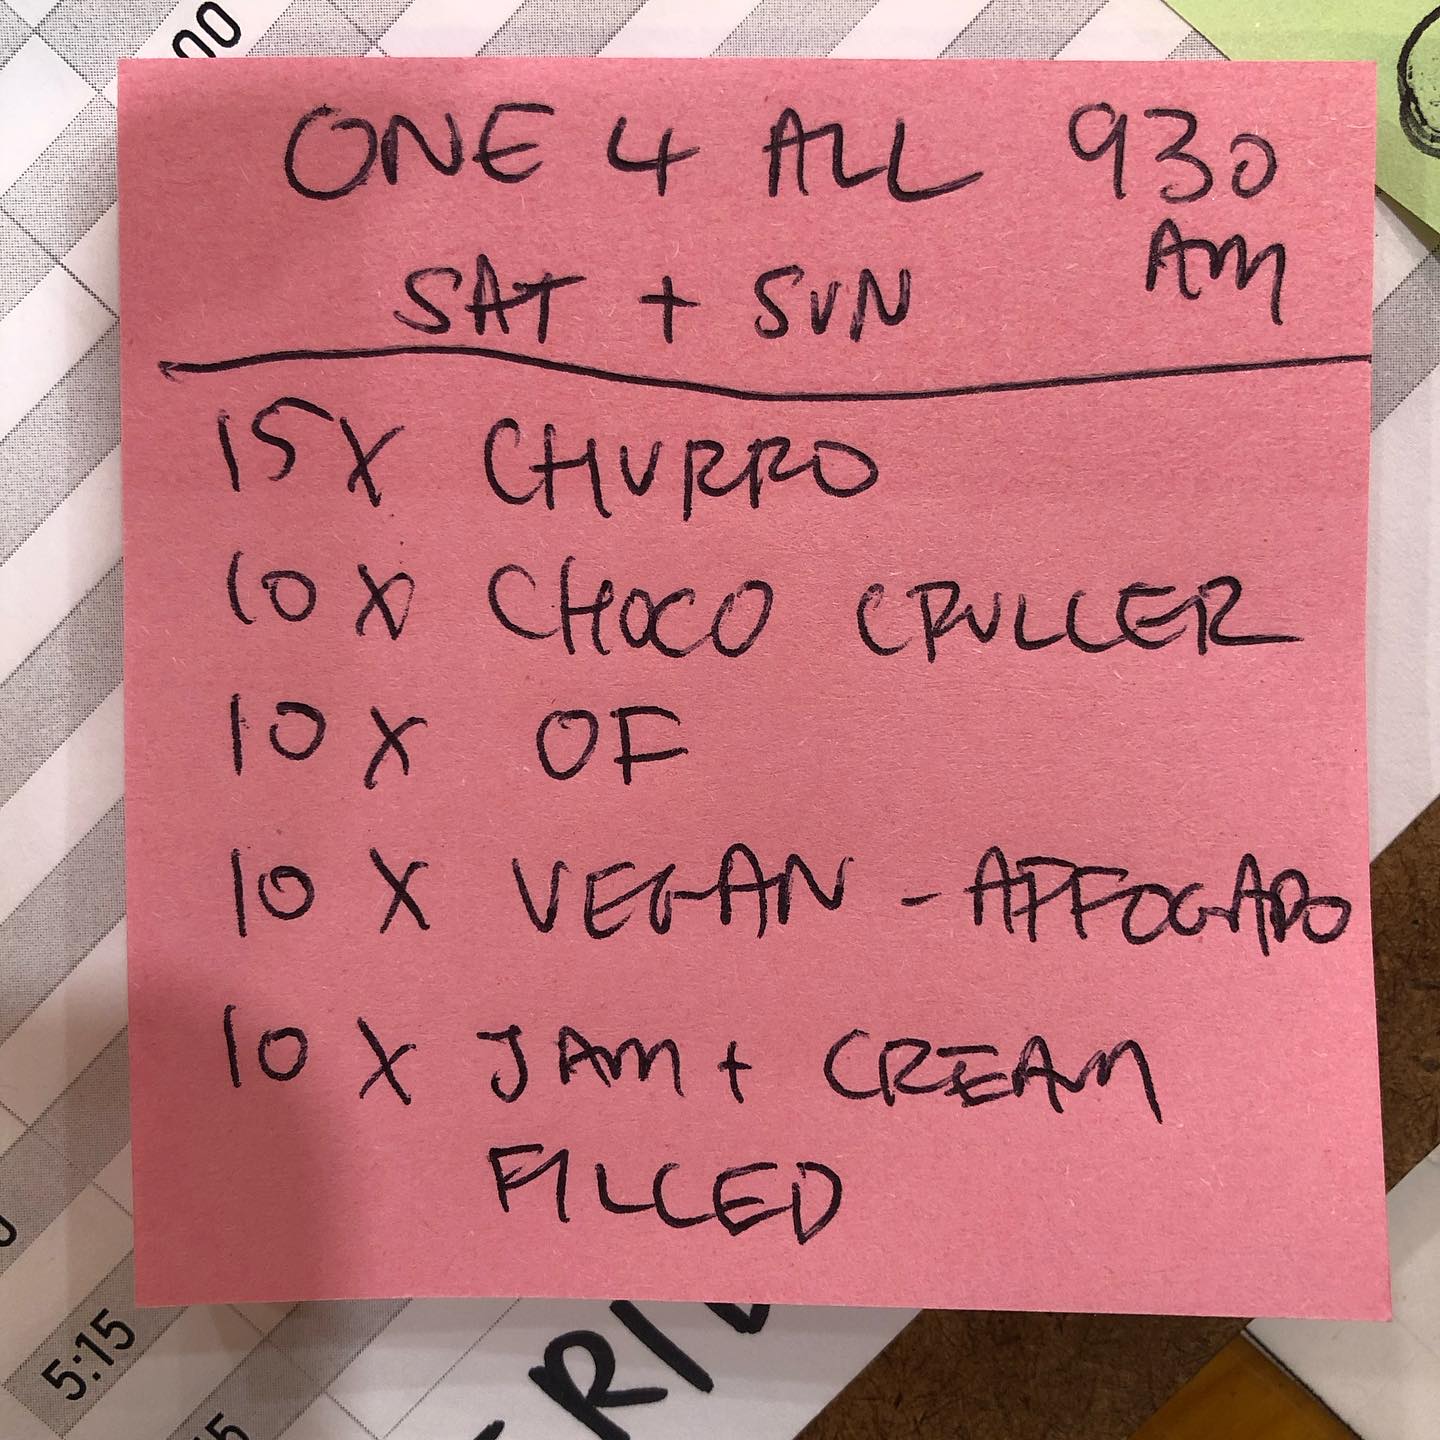 00
ONE 4 ALL 930
AM
SAT + SUN
15 X CHURRO
10 X CHOCO CRULLER
10 X OF
10 X VEGAN - AFFOGADO
10 X JAM + CREAM
FILLED
5:15